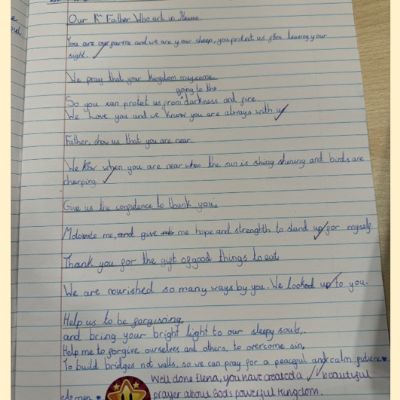 Our Father Who art in Heaven
You are our and we are your sheep, you protect us from leaving your
sight.
We pray that your kingdom may come
going to the
So you can protect us from darkness and fire
We love you and we know you are always with us
Father, show us that you are near.
We know when you are near when the sun is shining and birds are
chirping.
Give us the confidence to thank you.
Motivate me, and give me hope and strength to stand up for myself.
Thank you for the gift of good things to eat
We are nourished so many ways by you. We looked up to you.
Help us to be forgiving,
and bring your bright light to our sleepy souls.
Help me to forgive ourselves and others, to overcome sin,
To build bridges not walls, so we can pray for a peaceful and calm
Well done, you have created a beautiful
prayer about God's powerful Kingdom.